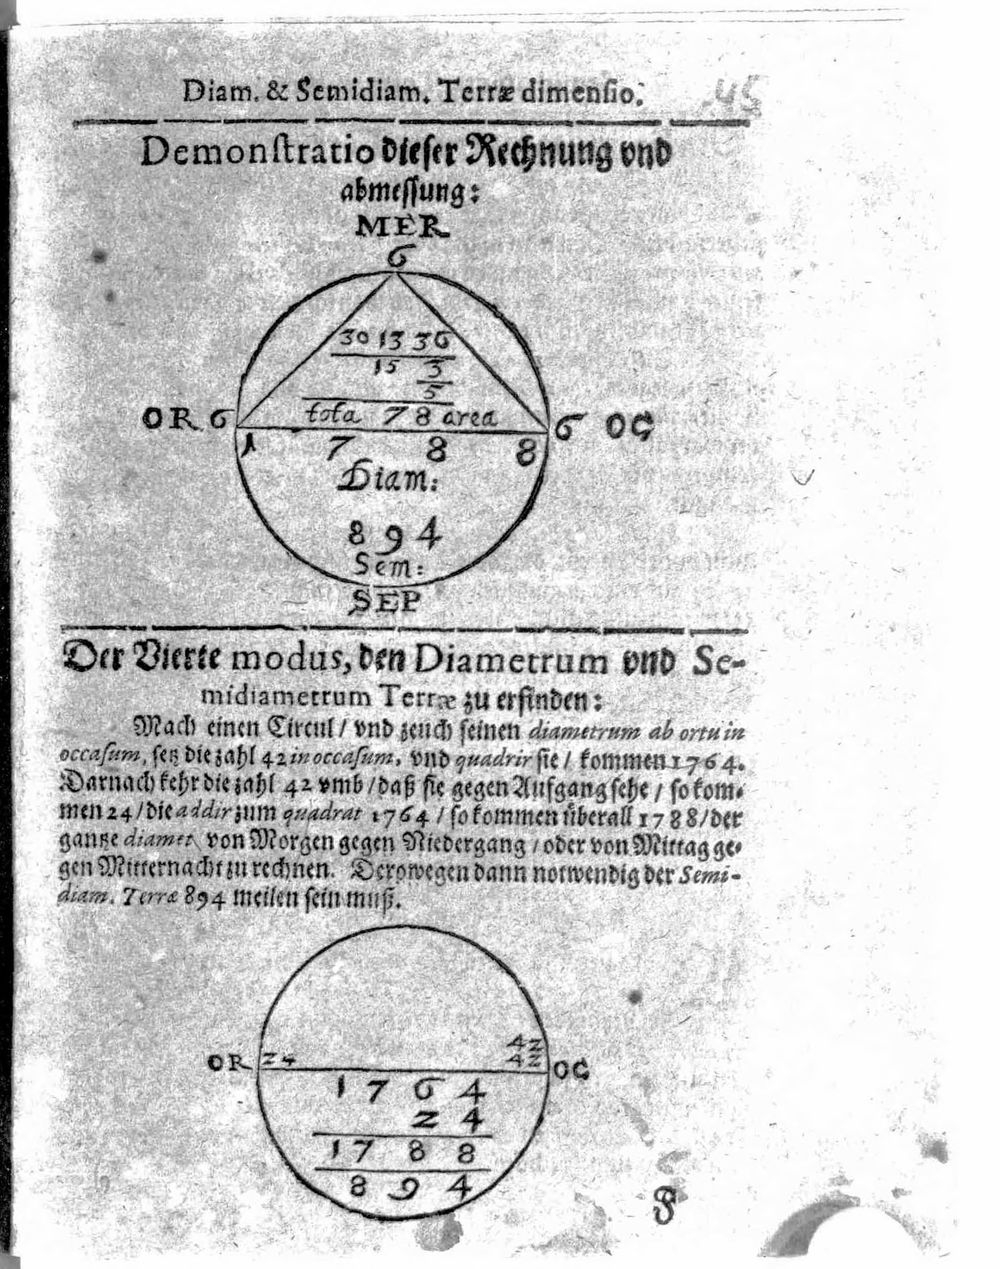 Diam. & Semidiam. Terræ dimensio.
45
Demonstratio dieser Rechnung vnd
abmessung:
MER
6
30 13 36
15 3
5
OR 6
tota 78 area
6 OC
1 7 8 8
Diam:
8 9 4
Sem:
SEP
Der Vierte modus, den Diametrum vnd Se-
midiametrum Terræ zu erfinden:
Mach einen Circul / vnd zeuch seinen diametrum ab ortu in
occasum, setz die zahl 42 in occasum, vnd quadrir sie / kommen 1764.
Darnach kehr die zahl 42 vmb / daß sie gegen Auffgang sehe / so kom-
men 24 / die addir zum quadrat 1764 / so kommen überall 1788 / der
gantze diamet. von Morgen gegen Niedergang / oder von Mittag ge-
gen Mitternacht zu rechnen. Derowegen dann notwendig der Semi-
diam. Terræ 894 meilen sein muß.
42
OR 24
42 OC
1 7 6 4
2 4
1 7 8 8
8 9 4